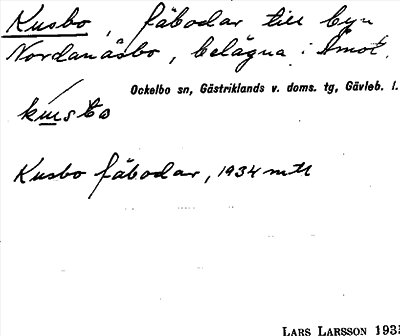 Kusbo, fäbodar till byn
Nordanåsbo, belägna i Åmot.
Ockelbo sn, Gästriklands v. doms. tg, Gävleb. l.
kusbo
Kusbo fäbodar, 1934 mtl
LARS LARSSON 193